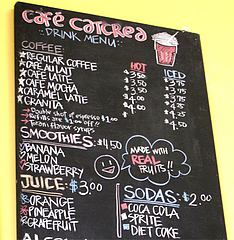 Café Catcrea
DRINK MENU:
COFFEE: HOT ICED
REGULAR COFFEE $3.50 $3.75
CAFE AU LAIT $3.50 $3.75
CAFE LATTE $3.75
CAFE MOCHA $3.75
CARAMEL LATTE $4.00
GRANITA $4.00 $4.50
Double shot of espresso $1.00
Refills are $1.00 off!
Torani flavor syrups
SMOOTHIES: $4.50
BANANA
MELON
STRAWBERRY
MADE WITH
REAL
FRUITS!!
JUICE: $3.00
ORANGE
PINEAPPLE
GRAPEFRUIT
SODAS: $2.00
COCA COLA
SPRITE
DIET COKE